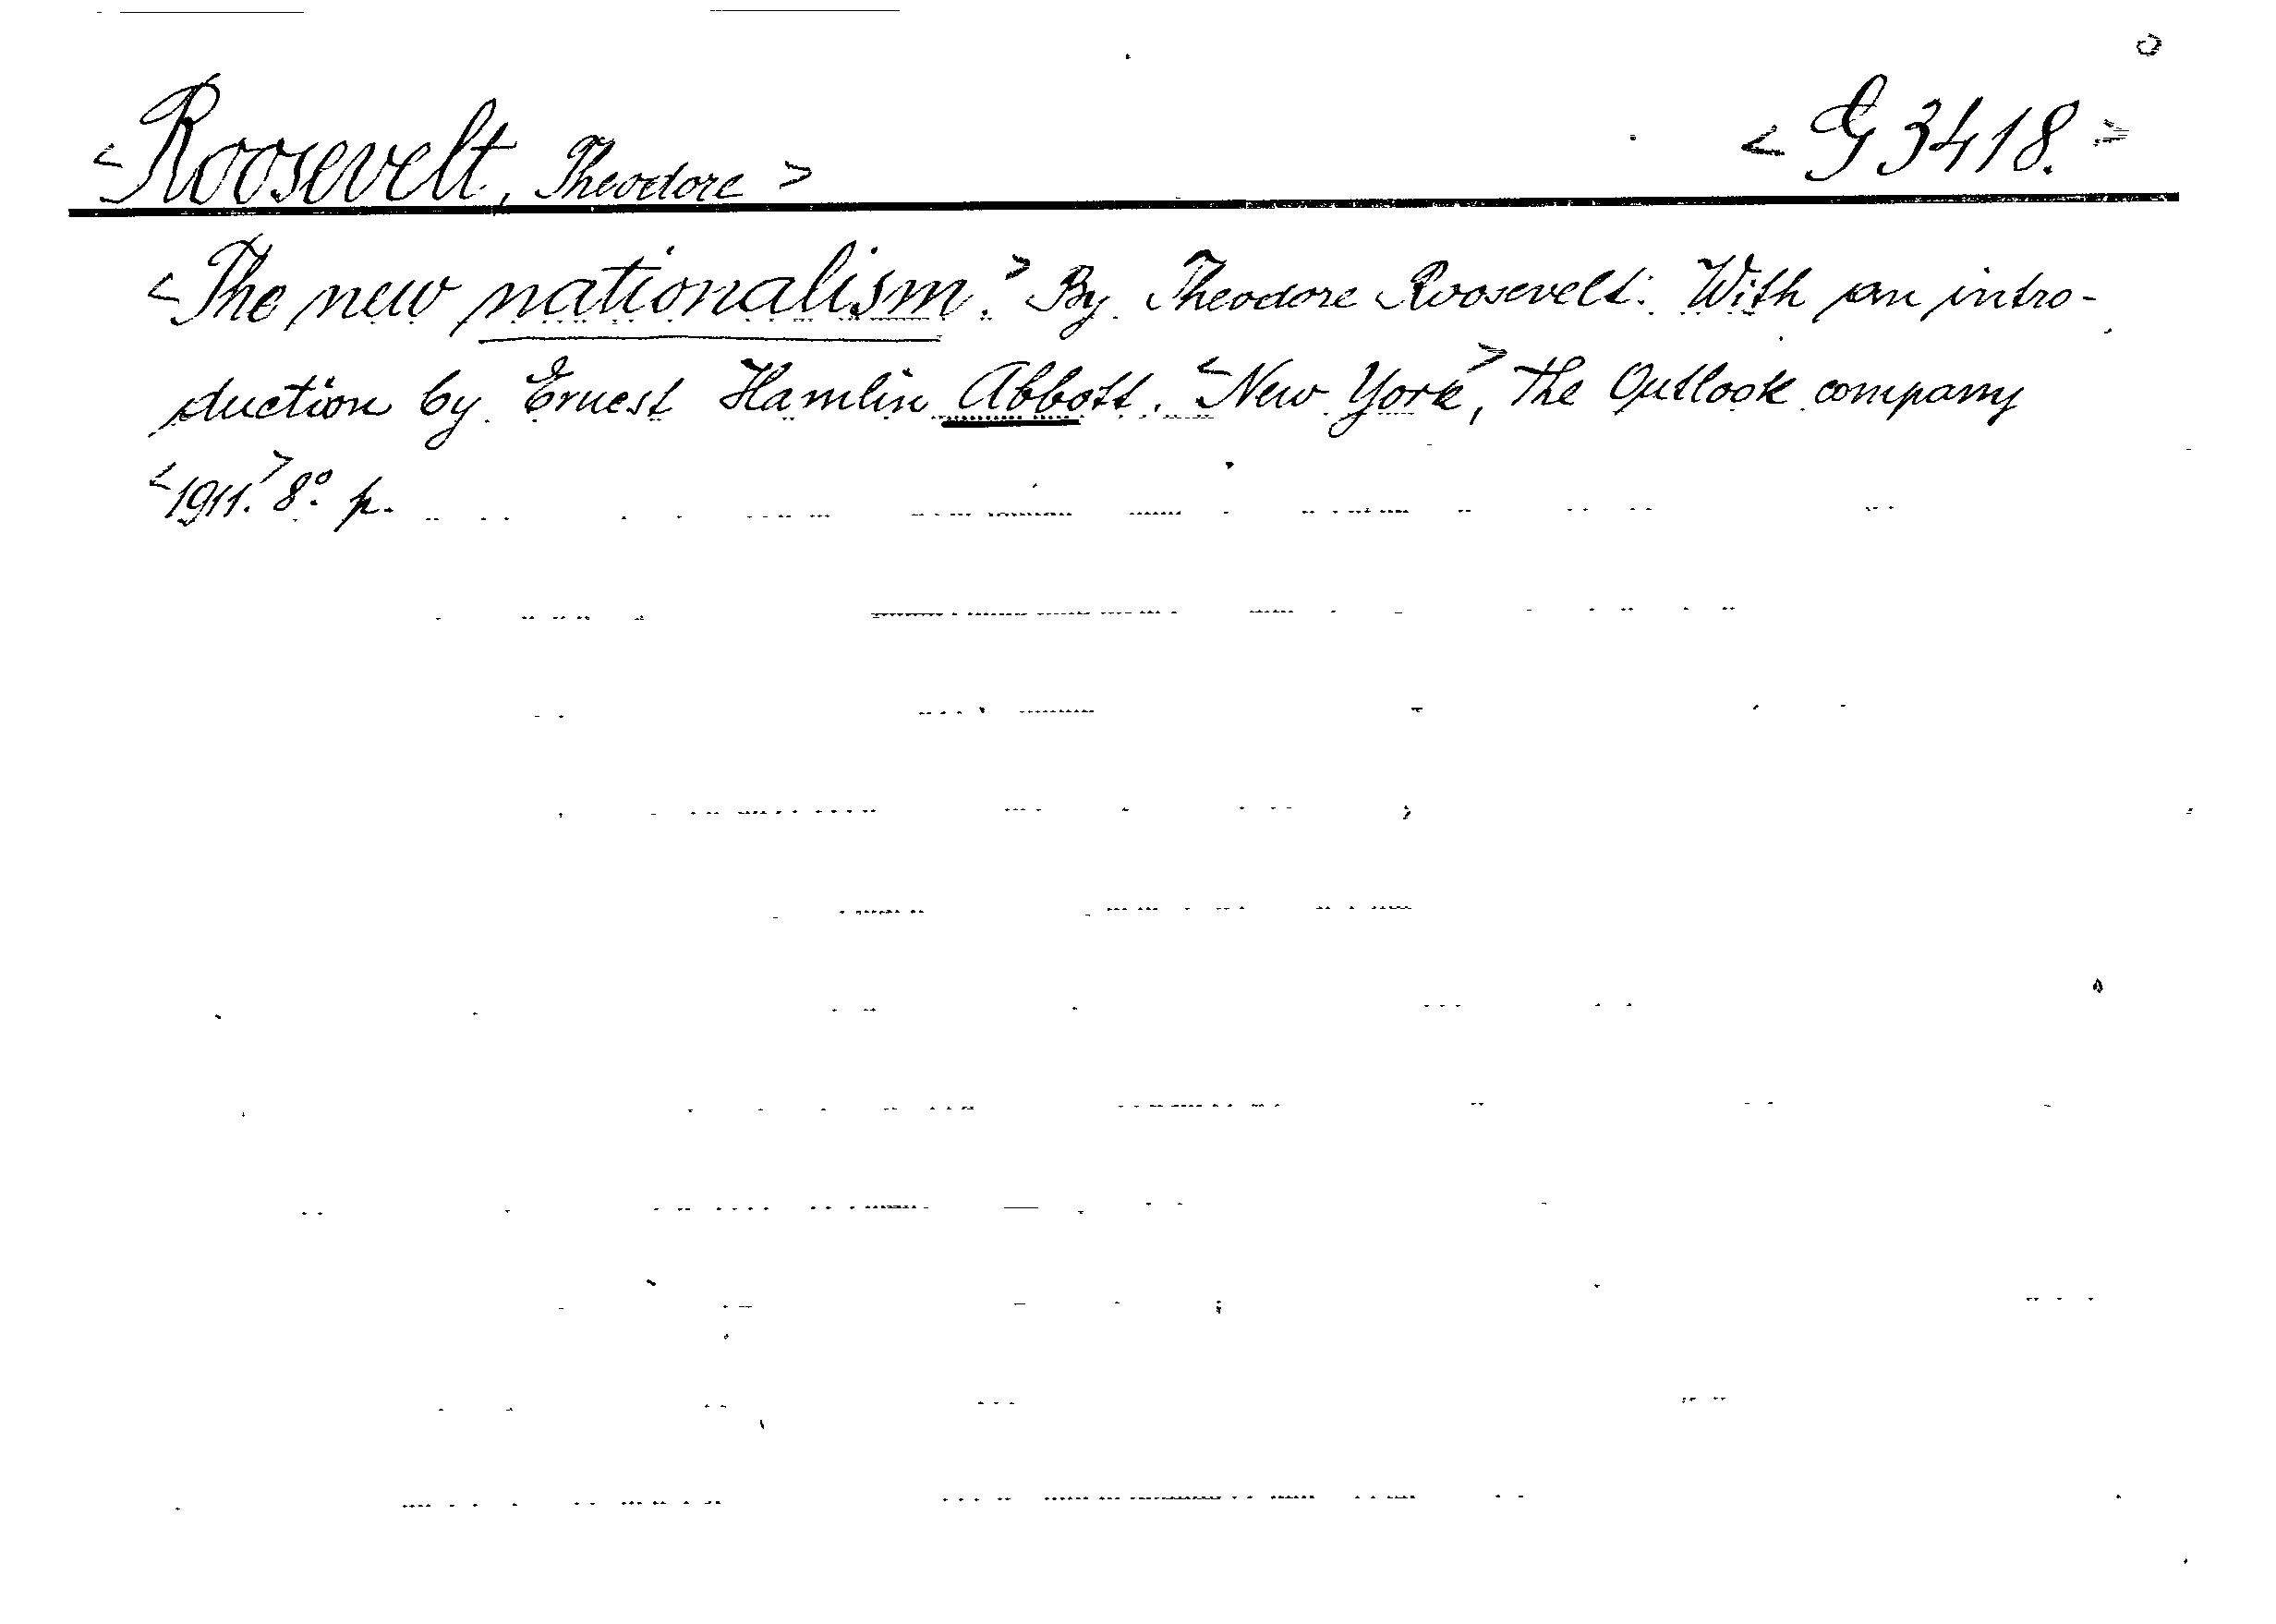 <Roosevelt, Theodore> <G 3418.>
<The new nationalism.> By Theodore Roosevelt. With an intro-
duction by Ernest Hamlin Abbott. <New York>, The Outlook company
<1911.> 8° p.